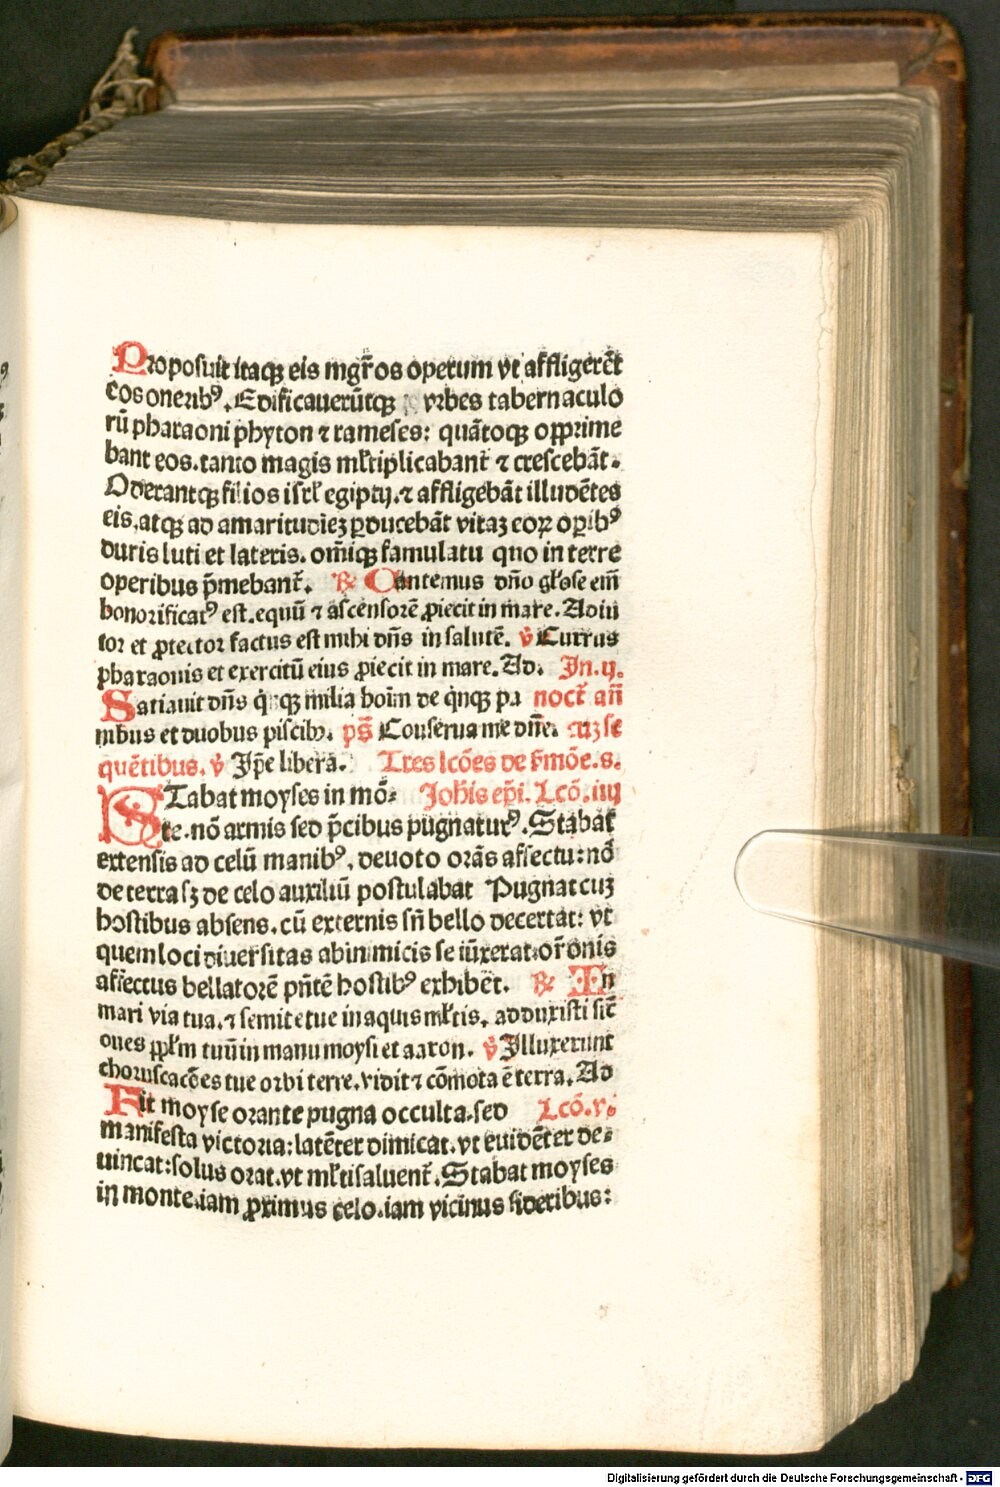 Proposuit itaqꝫ eis mgr̄os operum vt affligerēt
eos onerib⁹. Edificauerūtqꝫ vrbes tabernaculo
rū pharaoni phyton ⁊ rameses: quātoqꝫ opprime
bant eos.tanto magis ml̄tiplicabant̄ ⁊ crescebāt.
Oderantqꝫ filios isrl̄ egiptij.⁊ affligebāt illudētes
eis.atqꝫ ad amaritudiēꝫ ꝑducebāt vitaꝫ eoꝝ oꝑib⁹
duris luti et lateris. om̄iqꝫ famulatu quo in terre
operibus p̄mebant̄. ℟ Cantemus dn̄o gl̄ose em̄
honorificat⁹ est.equū ⁊ ascensorē ꝓiecit in mare. Adiu
tor et ꝓtector factus est mihi dn̄s in salutē. ℣ Currus
pharaonis et exercitū eius ꝓiecit in mare. Ad. In.ij.
Satiauit dn̄s q̇nqꝫ milia hoīm de q̇nqꝫ pa noct̄ an̄
nibus et duobus piscibꝫ. ps̄ Conserua me dn̄e. cuꝫ se
quētibus. ℣ Ip̄e libera. Tres lc̄ōes de ẜmōe.s.
STabat moyses in mō⸗ Joh̄is ep̄i. Lcō.iiij
te.nō armis sed p̄cibus pugnatur⁹. Stabat
extensis ad celū manib⁹. deuoto orās affectu:nō
de terra sꝫ de celo auxiliū postulabat Pugnat cuꝫ
hostibus absens. cū externis sn̄ bello decertat: vt
quem loci diuersitas ab inimicis seiūxerat.or̄onis
affectus bellatorē pn̄tē hostib⁹ exhibet. ℟ In
mari via tua.⁊ semite tue in aquis ml̄tis. adduxisti sic̄
oues ppl̄m tuū in manu moysi et aaron. ℣ Illuxerunt
choruscacōes tue orbi terre.vidit ⁊ cōmota ē terra. Ad
Fit moyse orante pugna occulta.sed Lcō.v.
manifesta victoria:latēter dimicat.vt euidēter de⸗
uincat:solus orat.vt ml̄ti saluent̄. Stabat moyses
in monte.iam ꝓximus celo.iam vicinus sideribus:
Digitalisierung gefördert durch die Deutsche Forschungsgemeinschaft - DFG